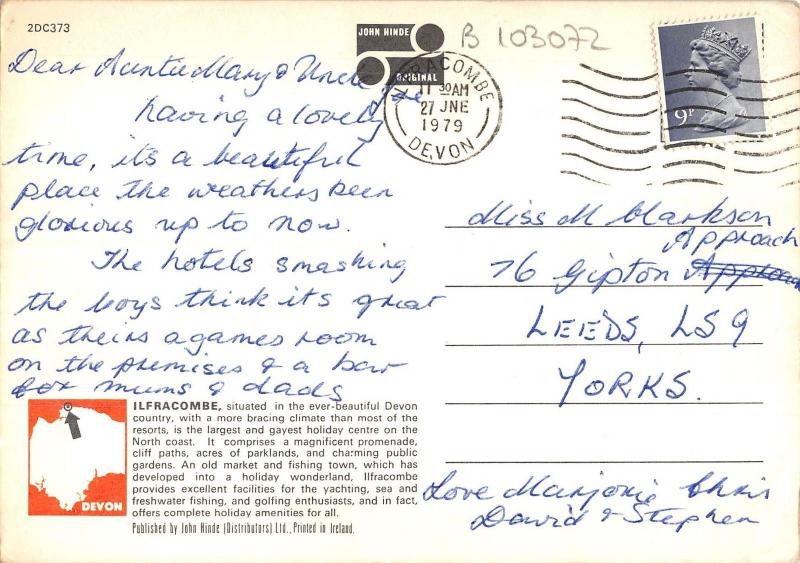 2DC373
JOHN HINDE
ORIGINAL
B 103072
ILFRACOMBE
11 30AM
27 JNE
1979
DEVON
9P
Dear Auntie Mary & Uncle Joe
having a lovely
time, it's a beautiful
place the weathers been
glorious up to now.
The hotels smashing
the boys think its great
as theirs a games room
on the premises & a bar
for mums & dads
Miss M Clarkson
Approach
76 Gipton Approach
LEEDS, LS9
YORKS.
Love Marjorie Chris
David & Stephen
DEVON
ILFRACOMBE, situated in the ever-beautiful Devon
country, with a more bracing climate than most of the
resorts, is the largest and gayest holiday centre on the
North coast. It comprises a magnificent promenade,
cliff paths, acres of parklands, and charming public
gardens. An old market and fishing town, which has
developed into a holiday wonderland, Ilfracombe
provides excellent facilities for the yachting, sea and
freshwater fishing, and golfing enthusiasts, and in fact,
offers complete holiday amenities for all.
Published by John Hinde (Distributors) Ltd., Printed in Ireland.